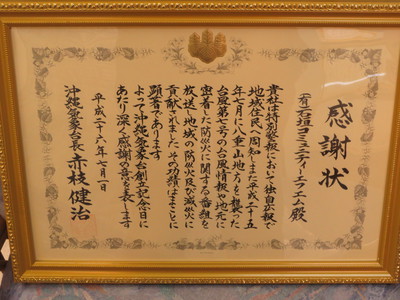 感謝状
(有)石垣コミュニティーエフエム殿
貴社は特別警報において独自広報で
地域住民へ周知また平成二十五
年七月に八重山地方を襲った
台風第七号の台風情報や地元に
密着した防災に関する番組を
放送し地域の防災及び減災に
貢献されましたその功績はまことに
顕著であります
よって沖縄気象台創立記念日に
あたり深く感謝の意を表します
平成二十六年七月一日
沖縄気象台長赤枝健治